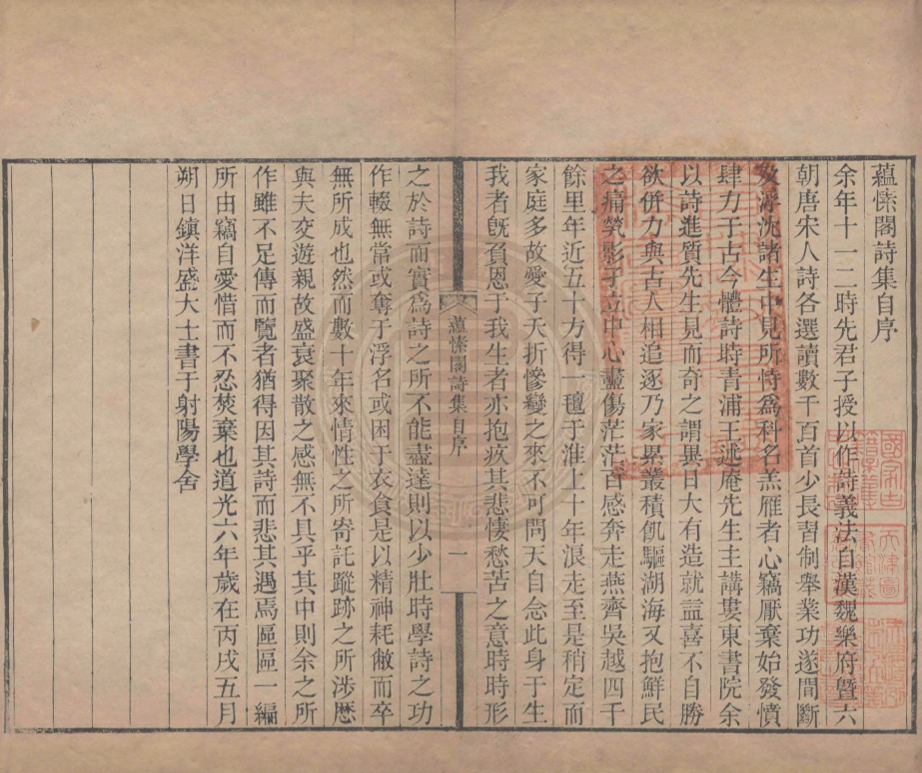 蘊愫閣詩集自序
余年十一二時先君子授以作詩義法自漢魏樂府暨六
朝唐宋人詩各選讀數千百首少長習制舉業功遂間斷
及浮沈諸生中見所恃爲科名羔雁者心竊厭棄始發憤
肆力于古今體詩時青浦王述庵先生主講婁東書院余
以詩進質先生見而奇之謂異日大有造就益喜不自勝
欲併力與古人相追逐乃家累叢積飢驅湖海又抱鮮民
之痛煢影孑立中心盡傷茫茫百感奔走燕齊吳越四千
餘里年近五十方得一氊于淮上十年浪走至是稍定而
家庭多故愛子夭折慘變之來不可問天自念此身于生
我者旣負恩于我生者亦抱疚其悲悽愁苦之意時時形
蘊愫閣詩集 自序 一
之於詩而實爲詩之所不能盡達則以少壯時學詩之功
作輟無當或奪于浮名或困于衣食是以精神耗敝而卒
無所成也然而數十年來情性之所寄託蹤跡之所涉歴
與夫交遊親故盛衰聚散之感無不具乎其中則余之所
作雖不足傳而覽者猶得因其詩而悲其遇焉區區一編
所由竊自愛惜而不忍焚棄也道光六年歲在丙戌五月
朔日鎮洋盛大士書于射陽學舍